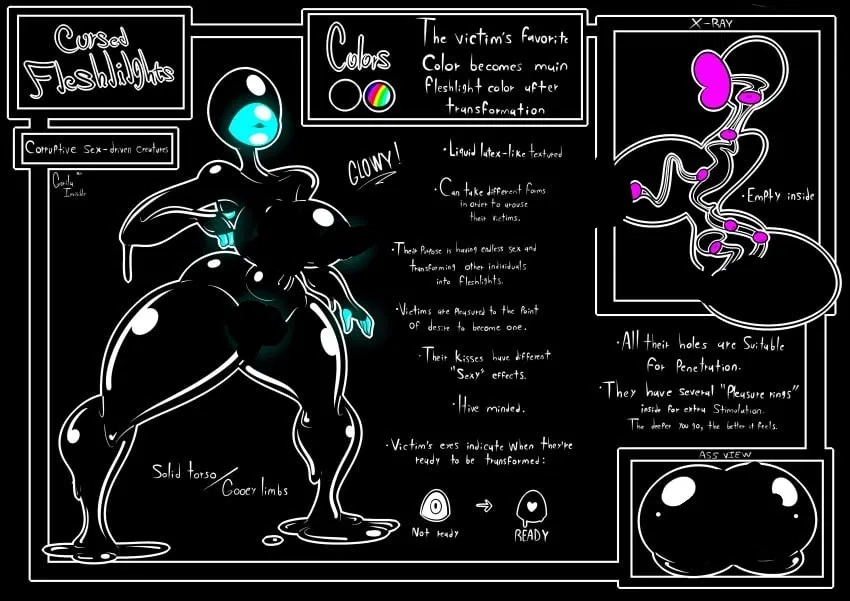 Cursed
Fleshlights
Corruptive sex-driven creatures
Colors
The victim's favorite
Color becomes main
fleshlight color after
transformation
GLOWY!
• Liquid latex-like textured
• Can take different forms
in order to arouse
their victims.
• Their Purpose is having endless sex and
transforming other individuals
into fleshlights.
• Victims are pleasured to the point
of desire to become one.
• Their kisses have different
"Sexy" effects.
• Hive minded.
• Victim's eyes indicate when they're
ready to be transformed:
Not ready
READY
Solid torso/
Gooey limbs
X-RAY
• Empty inside
• All their holes are Suitable
for Penetration.
• They have several "Pleasure rings"
inside for extra Stimulation.
The deeper you go, the better it feels.
ASS VIEW